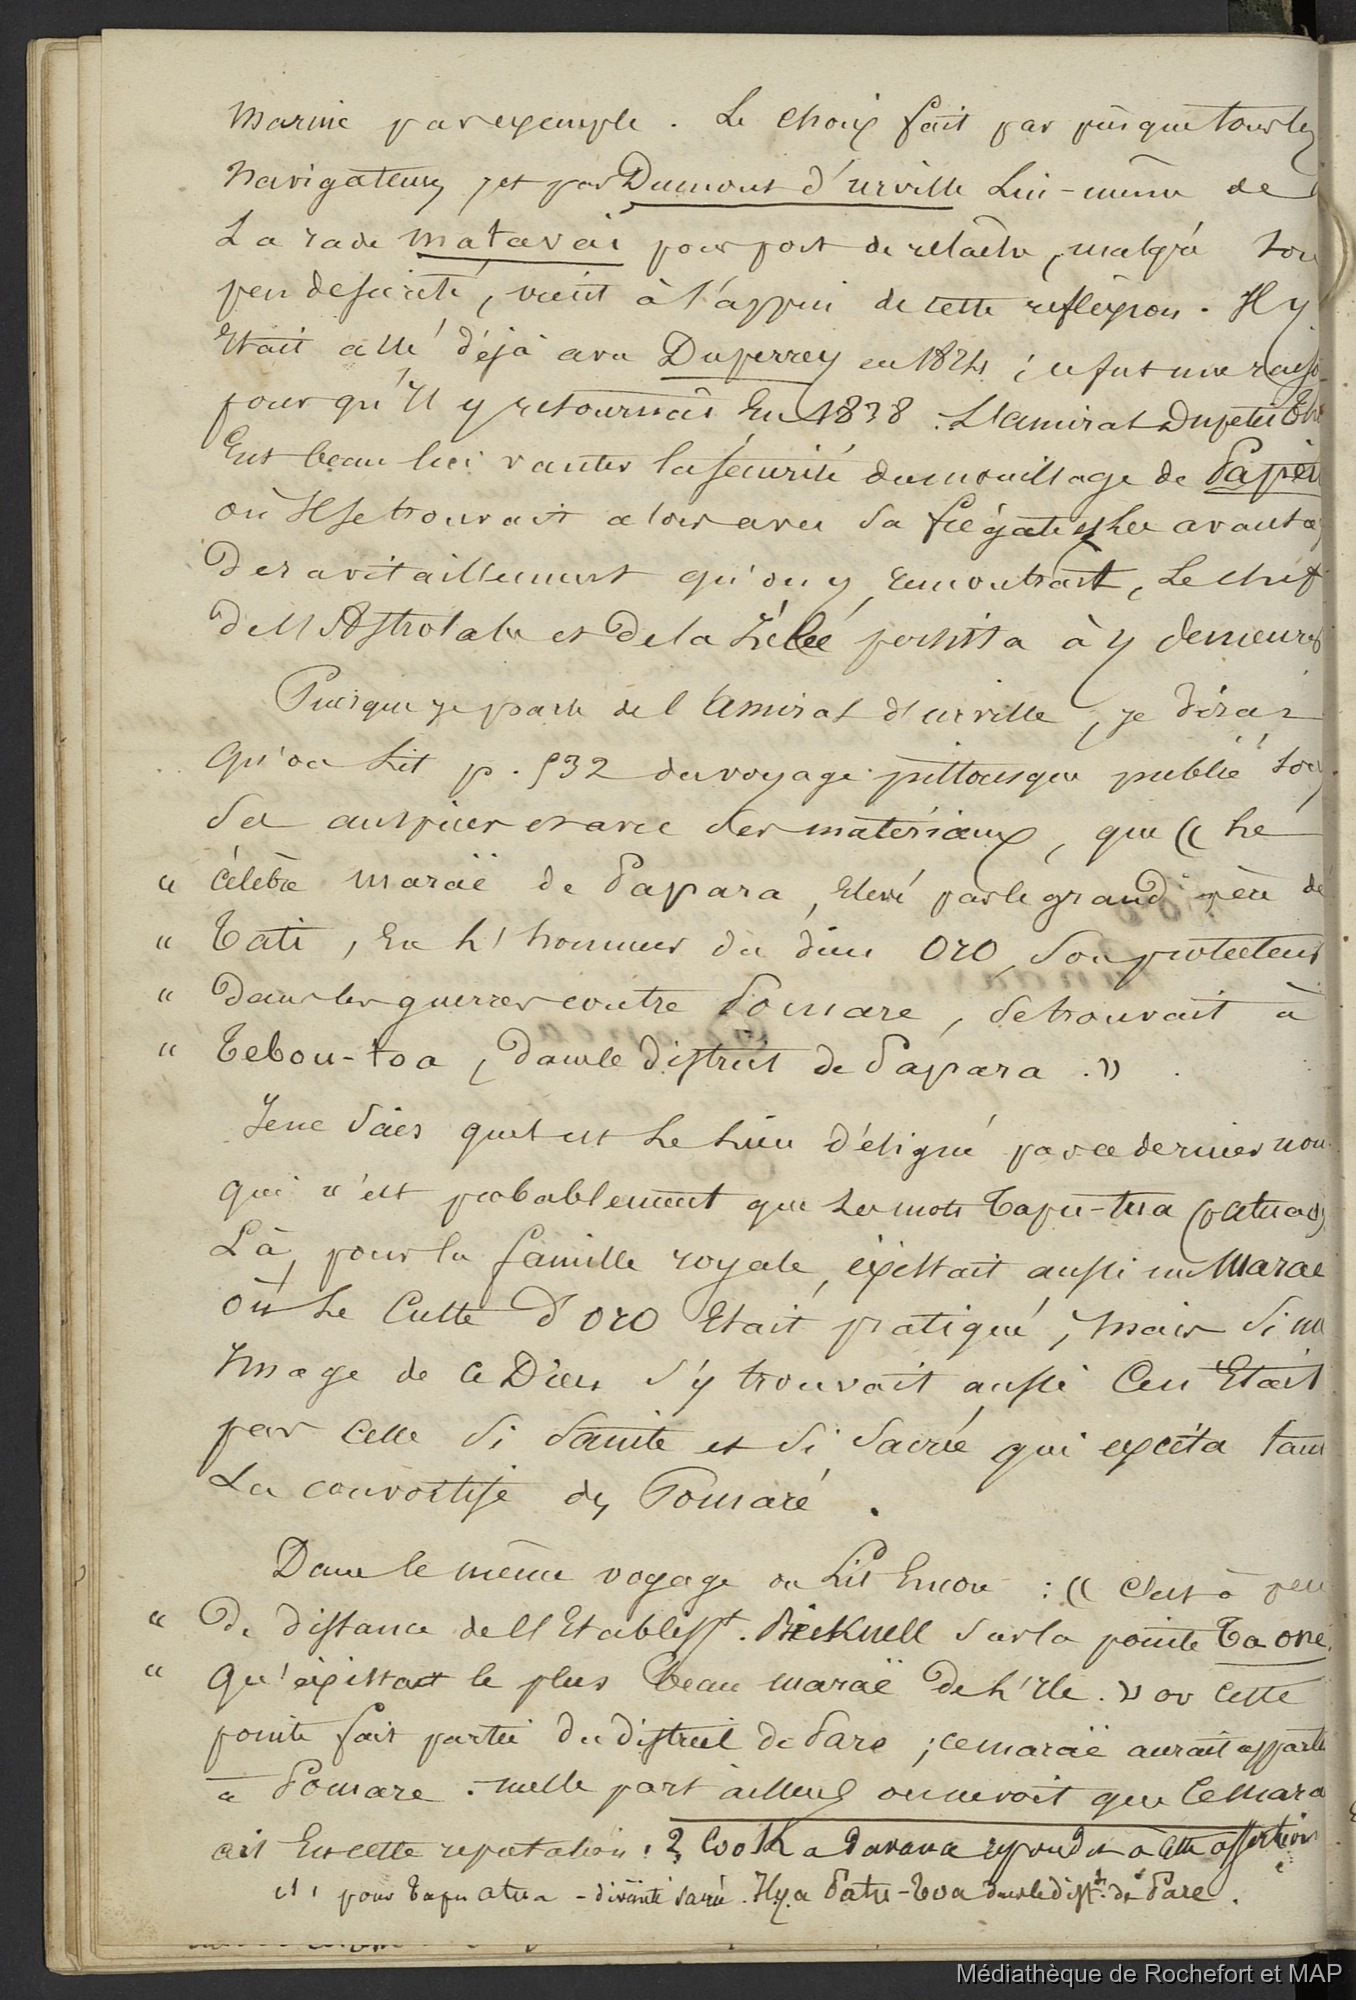 marine par exemple. Le choix fait par presque tous les
navigateurs, et par Dumont d'urville Lui-même de
La rade matavai pour port de relâche, malgré son
peu de sûreté, vient à l'appui de cette reflexion. Il y
Etait allé déjà avec Duperrey en 1824; ce fut une raiso
pour qu'Il y retournât En 1838. L'amiral Dupetit Th
Eut beau lui vanter la sécurité du mouillage de Papei
où Il se trouvait alors avec Sa frégate, les avanta
De ravitaillement qu'on y rencontrait, Le chef
De l'Astrolabe et De la Zélée persista à y demeurer
Puisque je parle de l'amiral d'urville, je dirai
qu'on Lit p. 532 du voyage pittoresque publié sou
Ses auspices et avec ses matériaux, que (( Le
" célèbre maraë de Papara, Elevé par le grand père de
" Tati, En L'honneur du dieu Oro, Son protecteur
" Dans les guerres contre Pomare, Se trouvait à
" Tebou-toa, Dans le District de Papara. ))
Je ne Sais quel est Le Lieu Désigné par ce dernier nom
qui n'est probablement que Les mots Tapu-tua (patua)
Là, pour la famille royale, éxistait aussi un Marae
où Le Culte d'Oro Etait pratiqué, mais Si un
Image de ce Dieu S'y trouvait aussi Ce n'Etait
pas celle Si Sainte et Si Sacrée qui excita tant
La convoitise des Pomaré.
Dans le même voyage on Lit Encore : (( C'est à peu
" De distance de l'Etablisst. Bicknell Sur la pointe Taone
" qu'éxistait le plus beau maraë De L'Ile. )) or cette
pointe fait partie Du District De Pare; ce maraë aurait apparte
à Pomare. nulle part ailleurs on ne voit que ce mara
ait Eu cette reputation. ? Cook a Davana repondu à cette assertion
pour Tapu atua - divinité sacrée. Il y a Patu-toa dans le distt. de Pare.